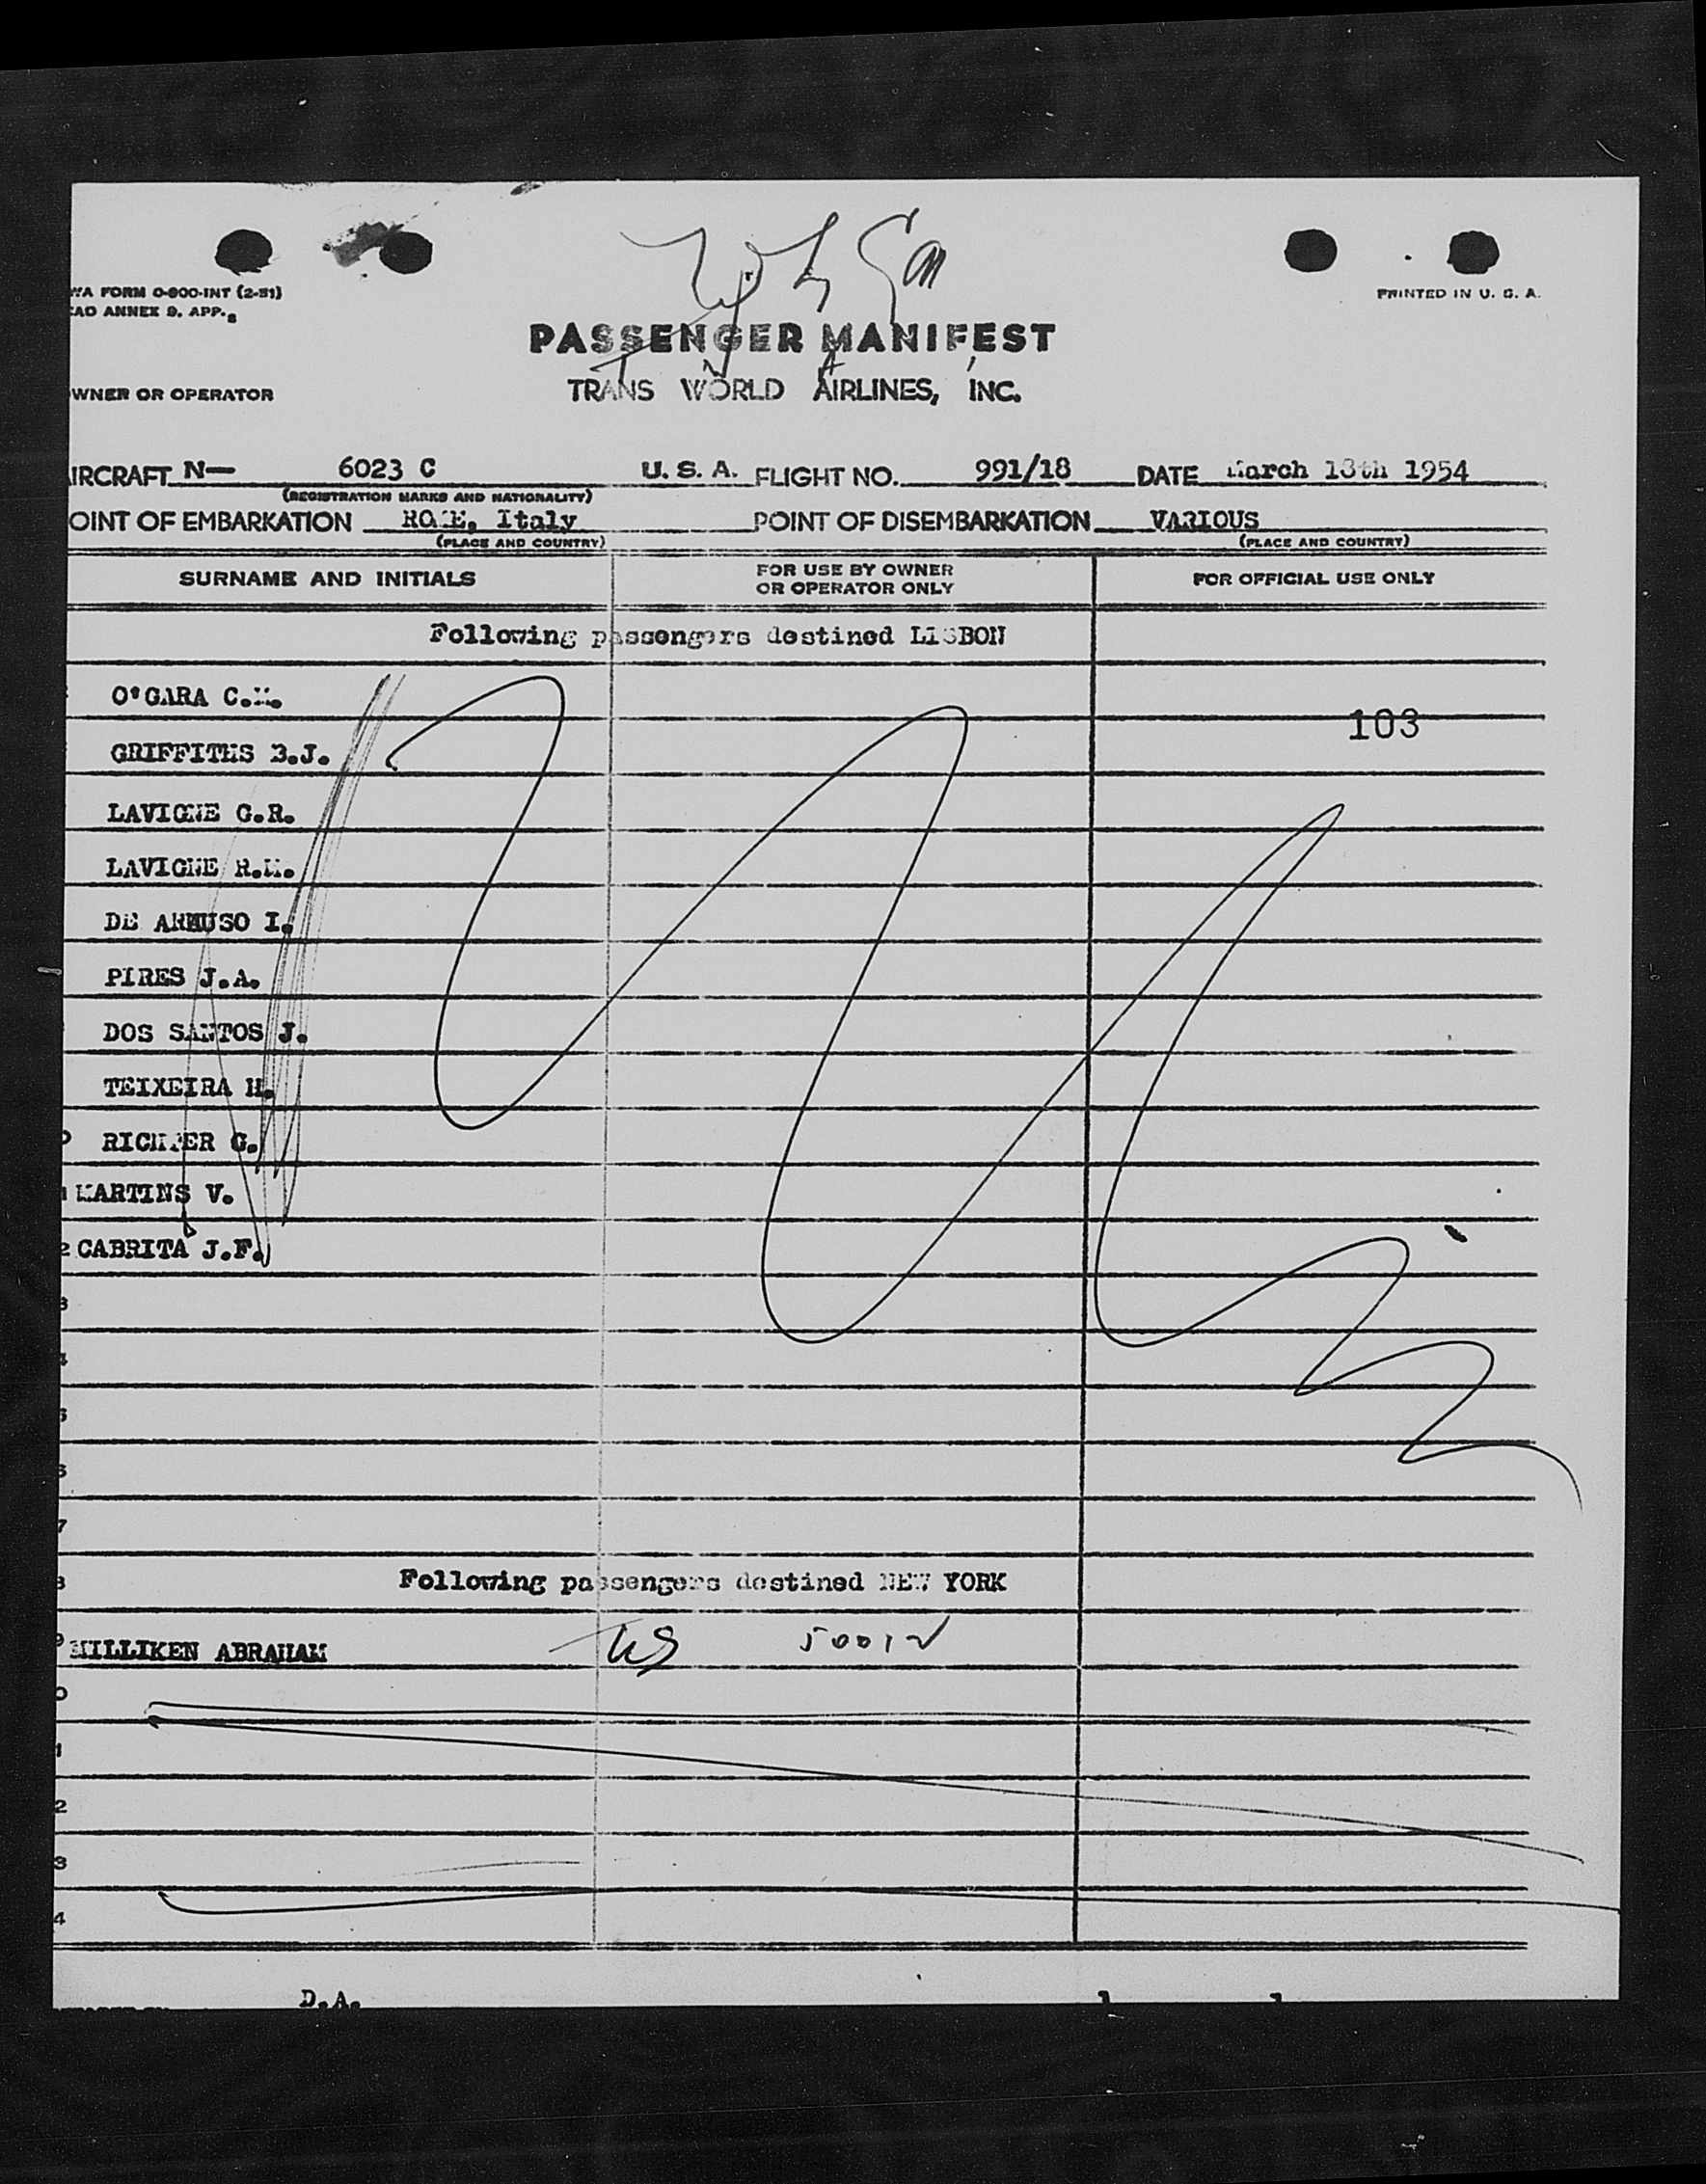 WA FORM 0-800-INT (2-51)
CAO ANNEX 9. APP.
PRINTED IN U. S. A.
PASSENGER MANIFEST
WNER OR OPERATOR
TRANS WORLD AIRLINES, INC.
IRCRAFT N— 6023 C U. S. A. FLIGHT NO. 991/18 DATE March 18th 1954
(REGISTRATION MARKS AND NATIONALITY)
OINT OF EMBARKATION ROME, Italy POINT OF DISEMBARKATION VARIOUS
(PLACE AND COUNTRY) (PLACE AND COUNTRY)
SURNAME AND INITIALS FOR USE BY OWNER OR OPERATOR ONLY FOR OFFICIAL USE ONLY
Following passengers destined LISBON
O'GARA C.M.
103
GRIFFITHS B.J.
LAVIGNE G.R.
LAVIGNE R.M.
DE ARMUSO I.
PIRES J.A.
DOS SANTOS J.
TEIXEIRA H.
RICHTER G.
MARTINS V.
2 CABRITA J.F.
3
4
5
6
7
8 Following passengers destined NEW YORK
9 MILLIKEN ABRAHAM US 5001
0
1
2
3
4
D.A. 1 1